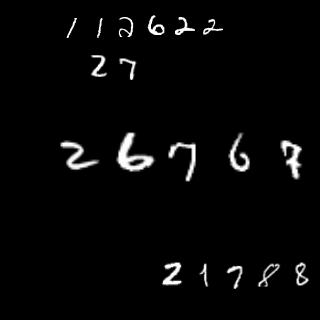 112622
27
26767
21788